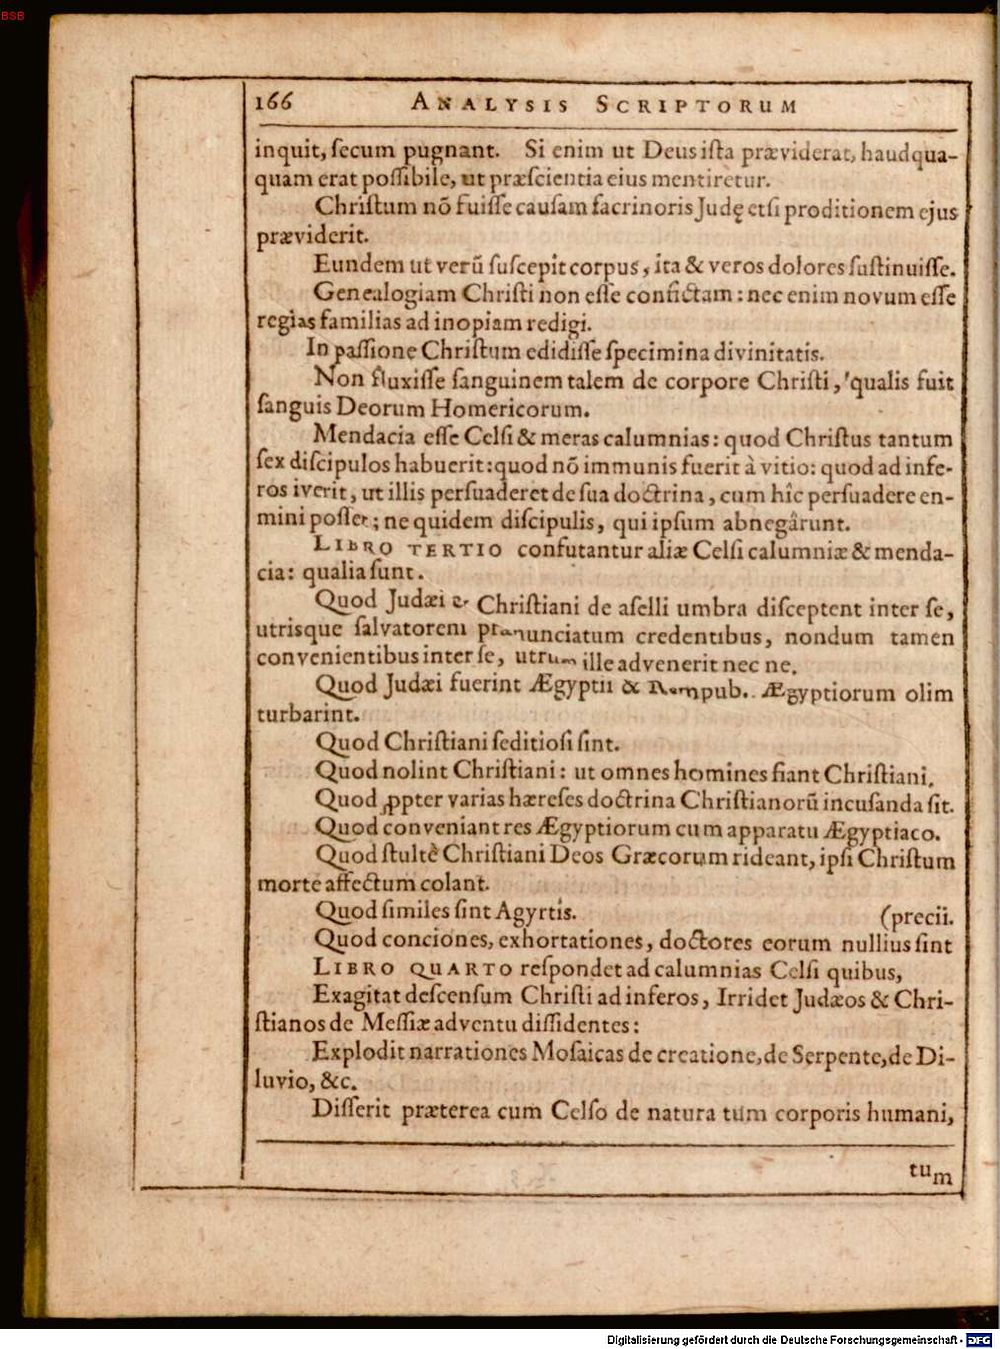 BSB
166 ANALYSIS SCRIPTORUM
inquit, ſecum pugnant. Si enim ut Deus iſta præviderat, haudqua-
quam erat poſſibile, ut præſcientia eius mentiretur.
Chriſtum nō fuiſſe cauſam facrinoris Judę etſi proditionem ejus
præviderit.
Eundem ut verū ſuſcepit corpus, ita & veros dolores ſuſtinuiſſe.
Genealogiam Chriſti non eſſe confictam: nec enim novum eſſe
regias familias ad inopiam redigi.
In paſſione Chriſtum edidiſſe ſpecimina divinitatis.
Non fluxiſſe ſanguinem talem de corpore Chriſti, qualis fuit
ſanguis Deorum Homericorum.
Mendacia eſſe Celſi & meras calumnias: quod Chriſtus tantum
ſex diſcipulos habuerit: quod nō immunis fuerit à vitio: quod ad infe-
ros iverit, ut illis perſuaderet de ſua doctrina, cum hîc perſuadere en-
mini poſſet; ne quidem diſcipulis, qui ipſum abnegârunt.
LIBRO TERTIO confutantur aliæ Celſi calumniæ & menda-
cia: qualia ſunt.
Quod Judæi & Chriſtiani de aſelli umbra diſceptent inter ſe,
utrisque ſalvatorem prænunciatum credentibus, nondum tamen
convenientibus inter ſe, utrum ille advenerit nec ne.
Quod Judæi fuerint Ægyptii & Rempub. Ægyptiorum olim
turbarint.
Quod Chriſtiani ſeditioſi ſint.
Quod nolint Chriſtiani: ut omnes homines fiant Chriſtiani.
Quod ꝓpter varias hæreſes doctrina Chriſtianorū incuſanda ſit.
Quod conveniant res Ægyptiorum cum apparatu Ægyptiaco.
Quod ſtultè Chriſtiani Deos Græcorum rideant, ipſi Chriſtum
morte affectum colant.
Quod ſimiles ſint Agyrtis. (precii.
Quod conciones, exhortationes, doctores eorum nullius ſint
LIBRO QUARTO reſpondet ad calumnias Celſi quibus,
Exagitat deſcenſum Chriſti ad inferos, Irridet Judæos & Chri-
ſtianos de Meſſiæ adventu diſſidentes:
Explodit narrationes Moſaicas de creatione, de Serpente, de Di-
luvio, &c.
Diſſerit præterea cum Celſo de natura tum corporis humani,
tum
Digitalisierung gefördert durch die Deutsche Forschungsgemeinschaft - DFG